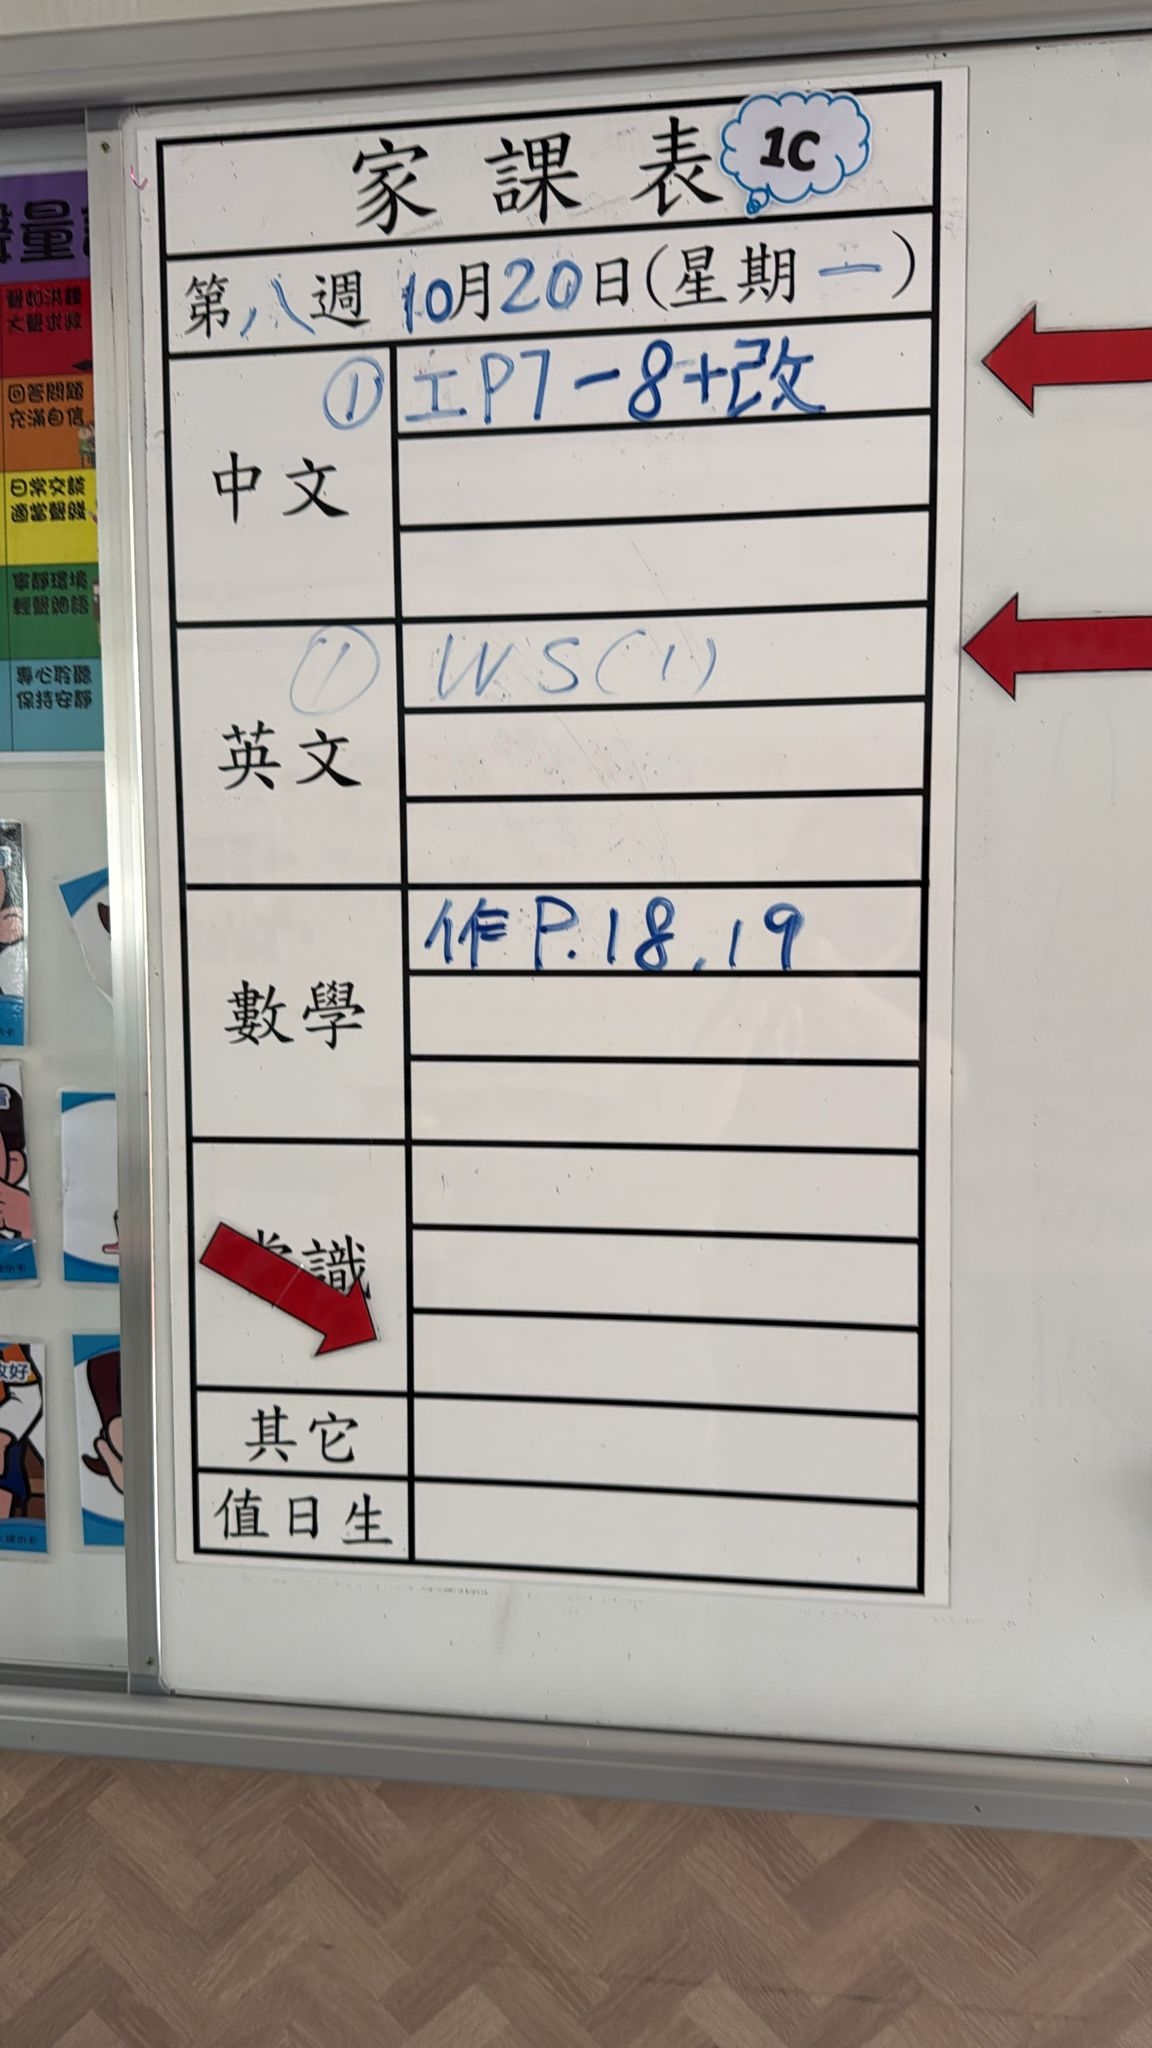 家課表 1C
第八週 10月20日(星期一)
中文 ① 工P7-8+改
英文 ① WS(1)
數學 作P.18,19
識
其它
值日生
量
聲如洪鐘
大聲求救
回答問題
充滿自信
日常交談
適當聲綫
寧靜環境
輕聲細語
專心聆聽
保持安靜